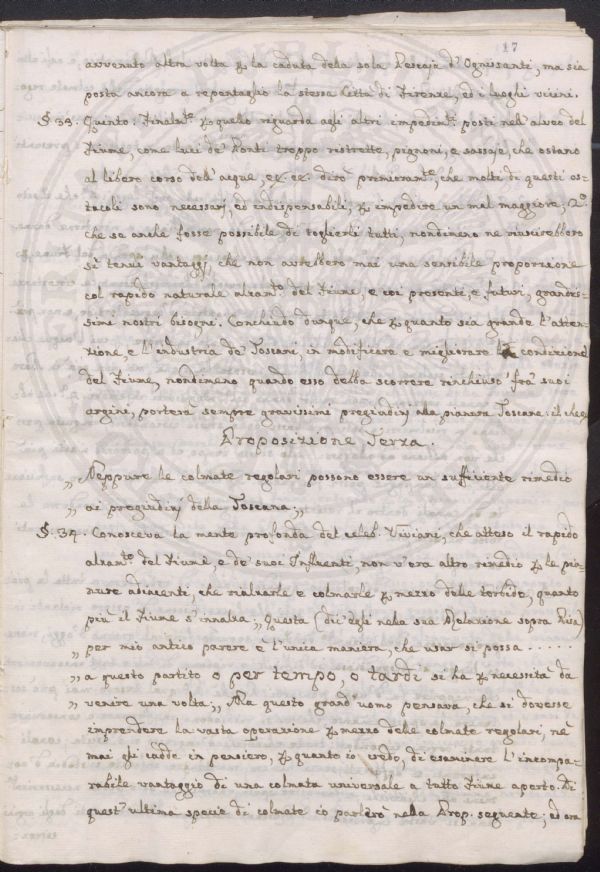 17
avvenuto altra volta p la caduta della sola Pescaja d'Ognissanti, ma sia
posta ancora a repentaglio la stessa Città di Firenze, ed i luoghi vicini.
§. 33. Quinto: Finalm.te p quello riguarda agli altri impedim.ti posti nell'alveo del
Fiume, come luci de' Ponti troppo ristrette, pignoni, e sassaje, che ostano
al libero corso dell'acque, dirò primieram.te, che molti di questi os-
tacoli sono necessarj, ed indispensabili, p impedire un mal maggiore, 2.o
che se anche fosse possibile di toglierli tutti, nondimeno ne riuscirebbero
sì tenui vantaggj, che non avrebbero mai una sensibile proporzione
col rapido naturale alzam.to del Fiume, e coi presenti, e futuri, grandis-
simi nostri bisogni. Conchiudo dunque, che p quanto sia grande l'atten-
zione, e l'industria de' Toscani, in modificare e migliorare la condizione
del Fiume, nondimeno quando esso debba scorrere rinchiuso frà suoi
argini, porterà sempre gravissimi pregiudizj alla pianura Toscana: il che
Proposizione Terza.
„ Neppure le colmate regolari possono essere un sufficiente rimedio
„ ai pregiudizj della Toscana. „
§. 34. Conosceva la mente profonda del celeb. Viviani, che atteso il rapido
alzam.to del Fiume, e de' suoi Influenti, non v'era altro rimedio p le pia-
nure adiacenti, che rialzarle e colmarle p mezzo delle torbide, quanto
più il Fiume s'innalza. „ Questa (dic'egli nella sua Relazione sopra Pisa)
„ per mio antico parere è l'unica maniera, che usar si possa . . . . . .
„ a questo partito o per tempo, o tardi si ha p necessità da
„ venire una volta: „ Ma questo grand'uomo pensava, che si dovesse
imprendere la vasta operazione p mezzo delle colmate regolari, nè
mai gli cadde in pensiero, p quanto io credo, di esaminare l'incompa-
rabile vantaggio di una colmata universale a tutto Fiume aperto. Di
quest'ultima specie di colmate io parlerò nella Prop. seguente; ed ora